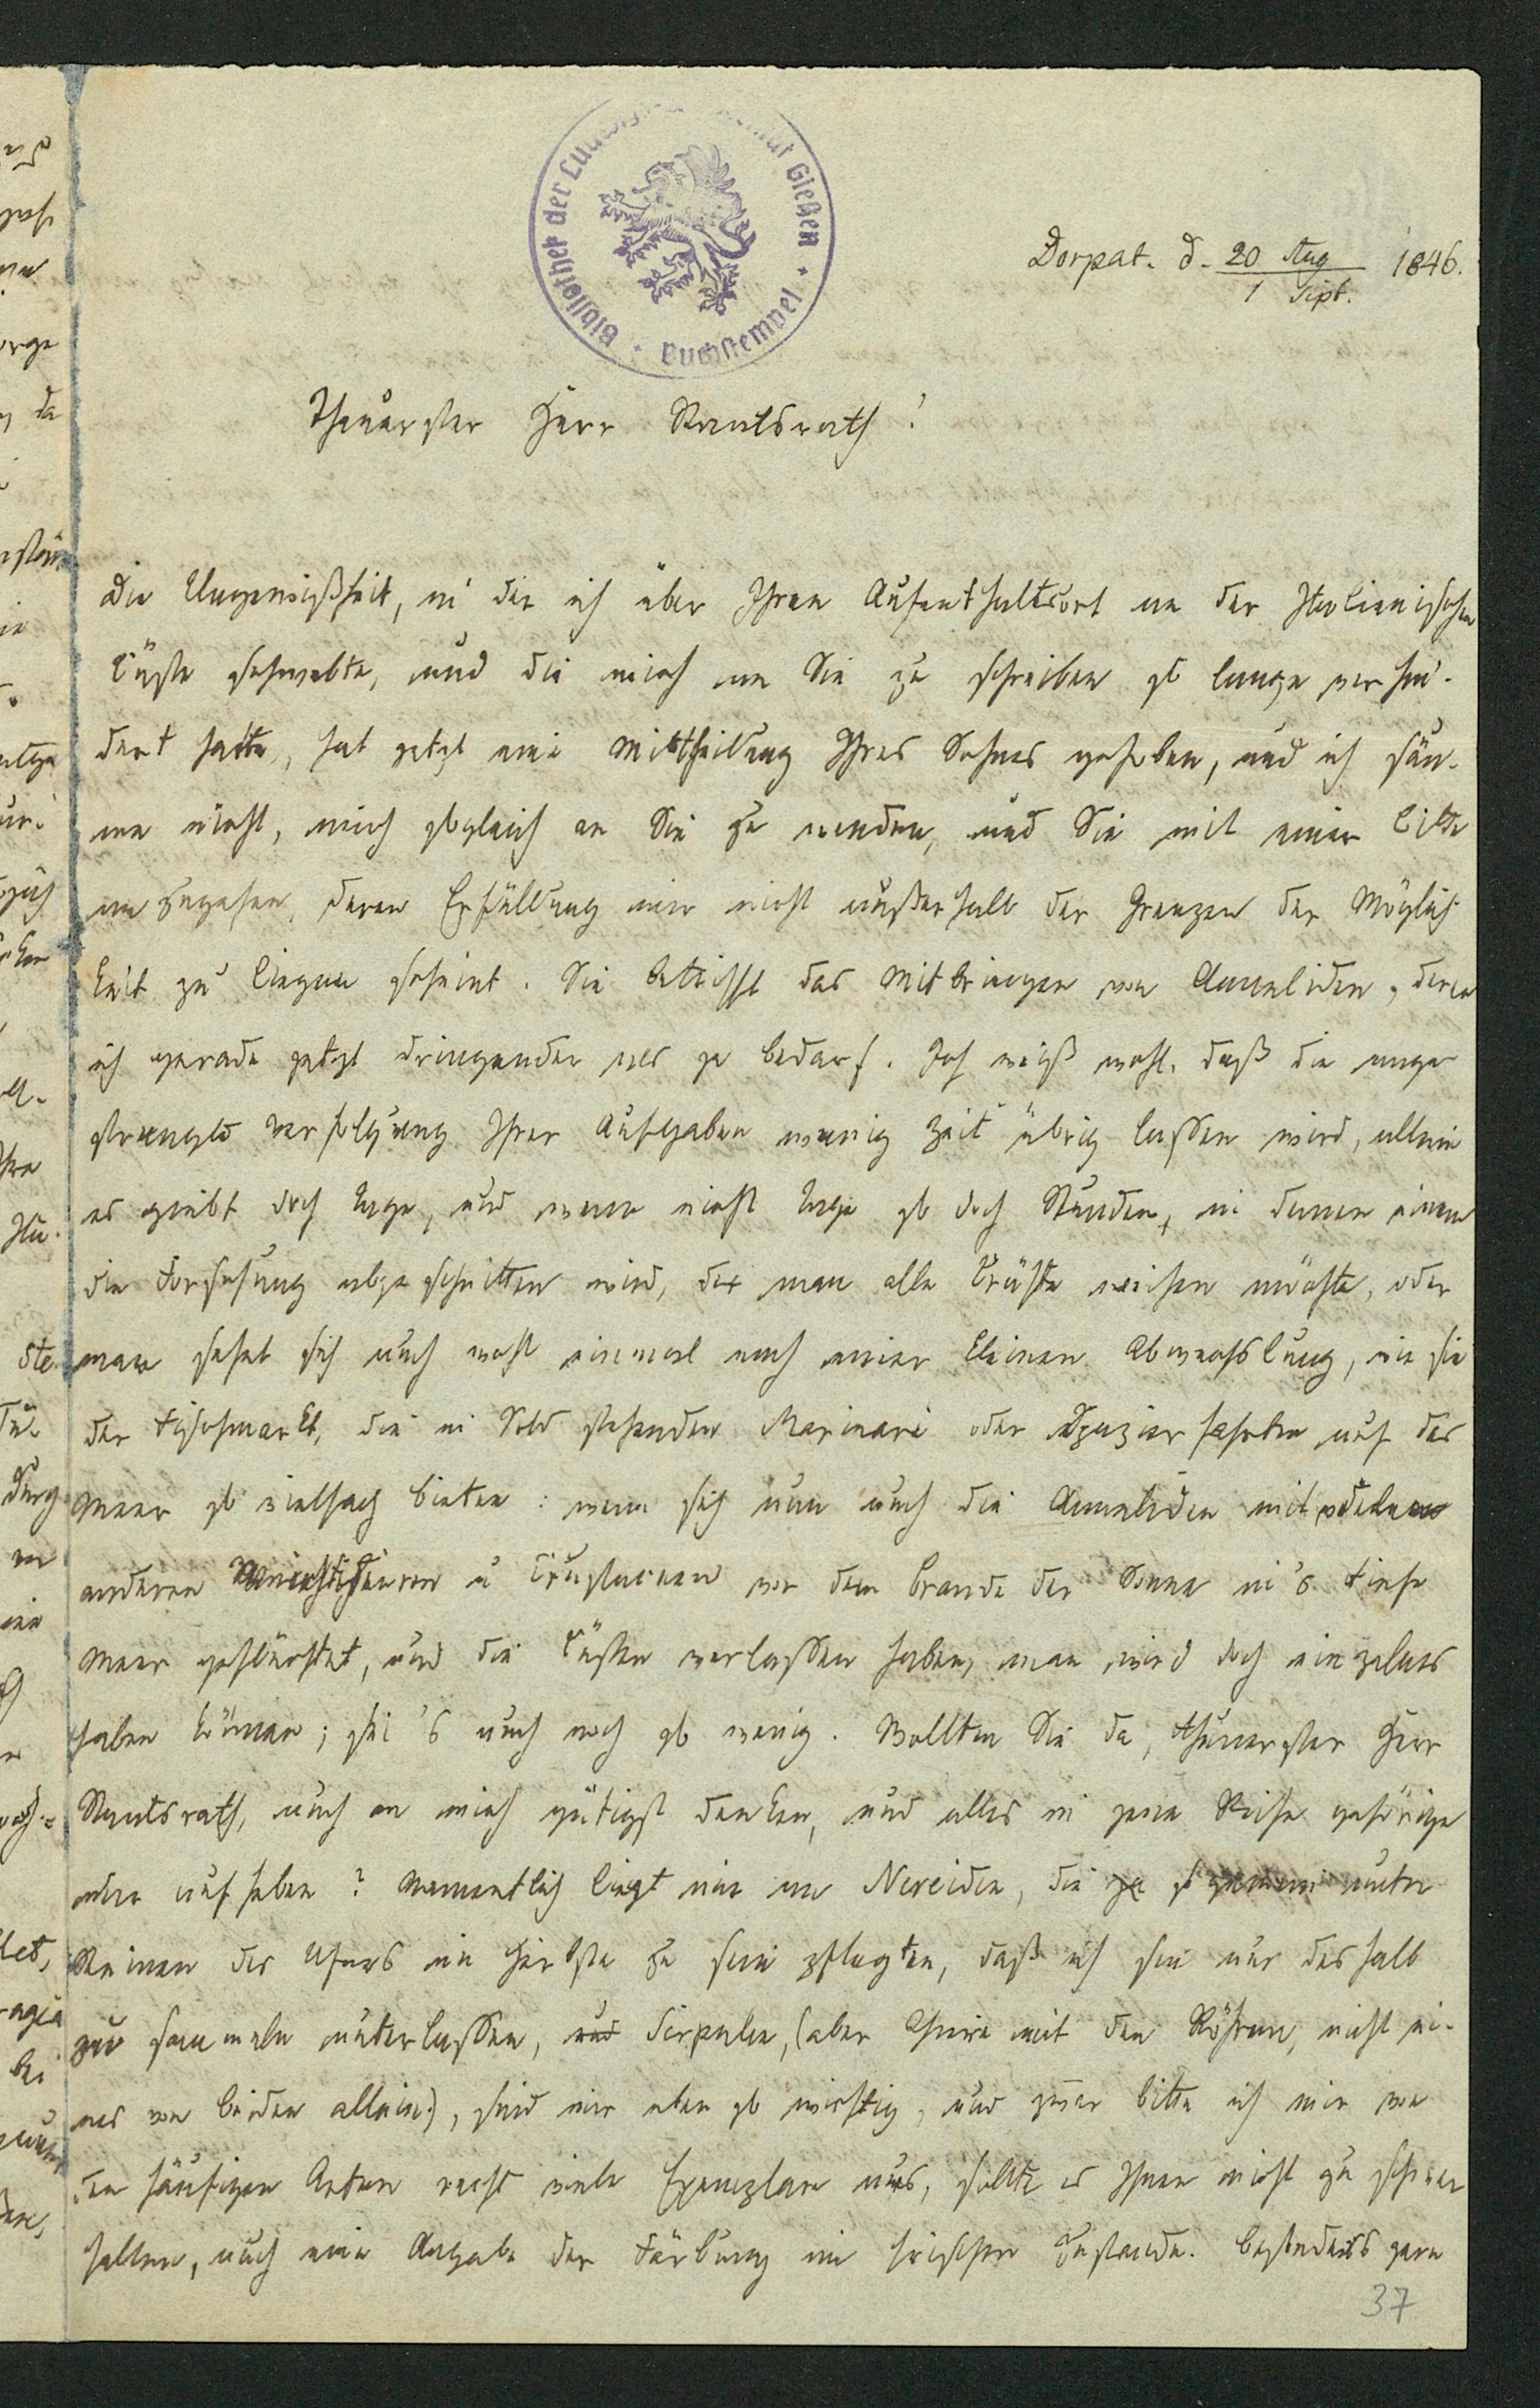 Bibliothek der Ludwigs-Universität Gießen · Buchstempel ·
Dorpat. d. 20 Aug / 1 Sept. 1846.
Theuerster Herr Staatsrath!
Die Ungewißheit, in der ich über Ihren Aufenthaltsort an der Italienischen
Küste schwebte, und die mich an Sie zu schreiben so lange verhin-
dert hatte, hat jetzt eine Mittheilung Ihres Sohnes gehoben, und ich säu-
me nicht, mich sogleich an Sie zu wenden, und Sie mit einer Bitte
anzugehen, deren Erfüllung mir nicht außerhalb der Grenzen der Möglich
keit zu liegen scheint. Sie betrifft das Mitbringen von Anneliden, deren
ich gerade jetzt dringender als je bedarf. Ich weiß wohl, daß die ange
strengte Verfolgung Ihrer Aufgaben wenig Zeit übrig lassen wird, allein
es giebt doch Tage, und wenn nicht Tage so doch Stunden, in denen einem
die Forschung abgeschnitten wird, der man alle Kräfte weihen möchte, oder
man sehnt sich auch wohl einmal nach einer kleinen Abwechslung, wie sie
der Fischmarkt, die in Sold stehenden Marinari oder Spazierfahrten auf das
Meer so vielfach bieten: wenn sich nun auch die Anneliden mit vielen
anderen u Crustaceen vor dem Brande der Sonne in's tiefe
Meer geflüchtet, und die Küsten verlassen haben, man wird doch einzelnes
haben können; sei's auch noch so wenig. Wollten Sie da, theuerster Herr
Staatsrath, auch an mich gütigst denken, und alles in jene Reihe gehörige
mir aufheben? Namentlich liegt mir an Nereiden, die so gemein unter
Steinen des Ufers im Herbste zu sein pflegten, daß ich sie nur deshalb
zu sammeln unterlassen, Serpulen, (aber Thiere mit den Röhren, nicht ei-
nes von beiden allein), sind mir eben so wichtig, und zwar bitte ich mir von
den häufigen Arten recht viele Exemplare aus, sollte es Ihnen nicht zu schwer
fallen, auch eine Angabe der Färbung im frischen Zustande. Besonders gern
37